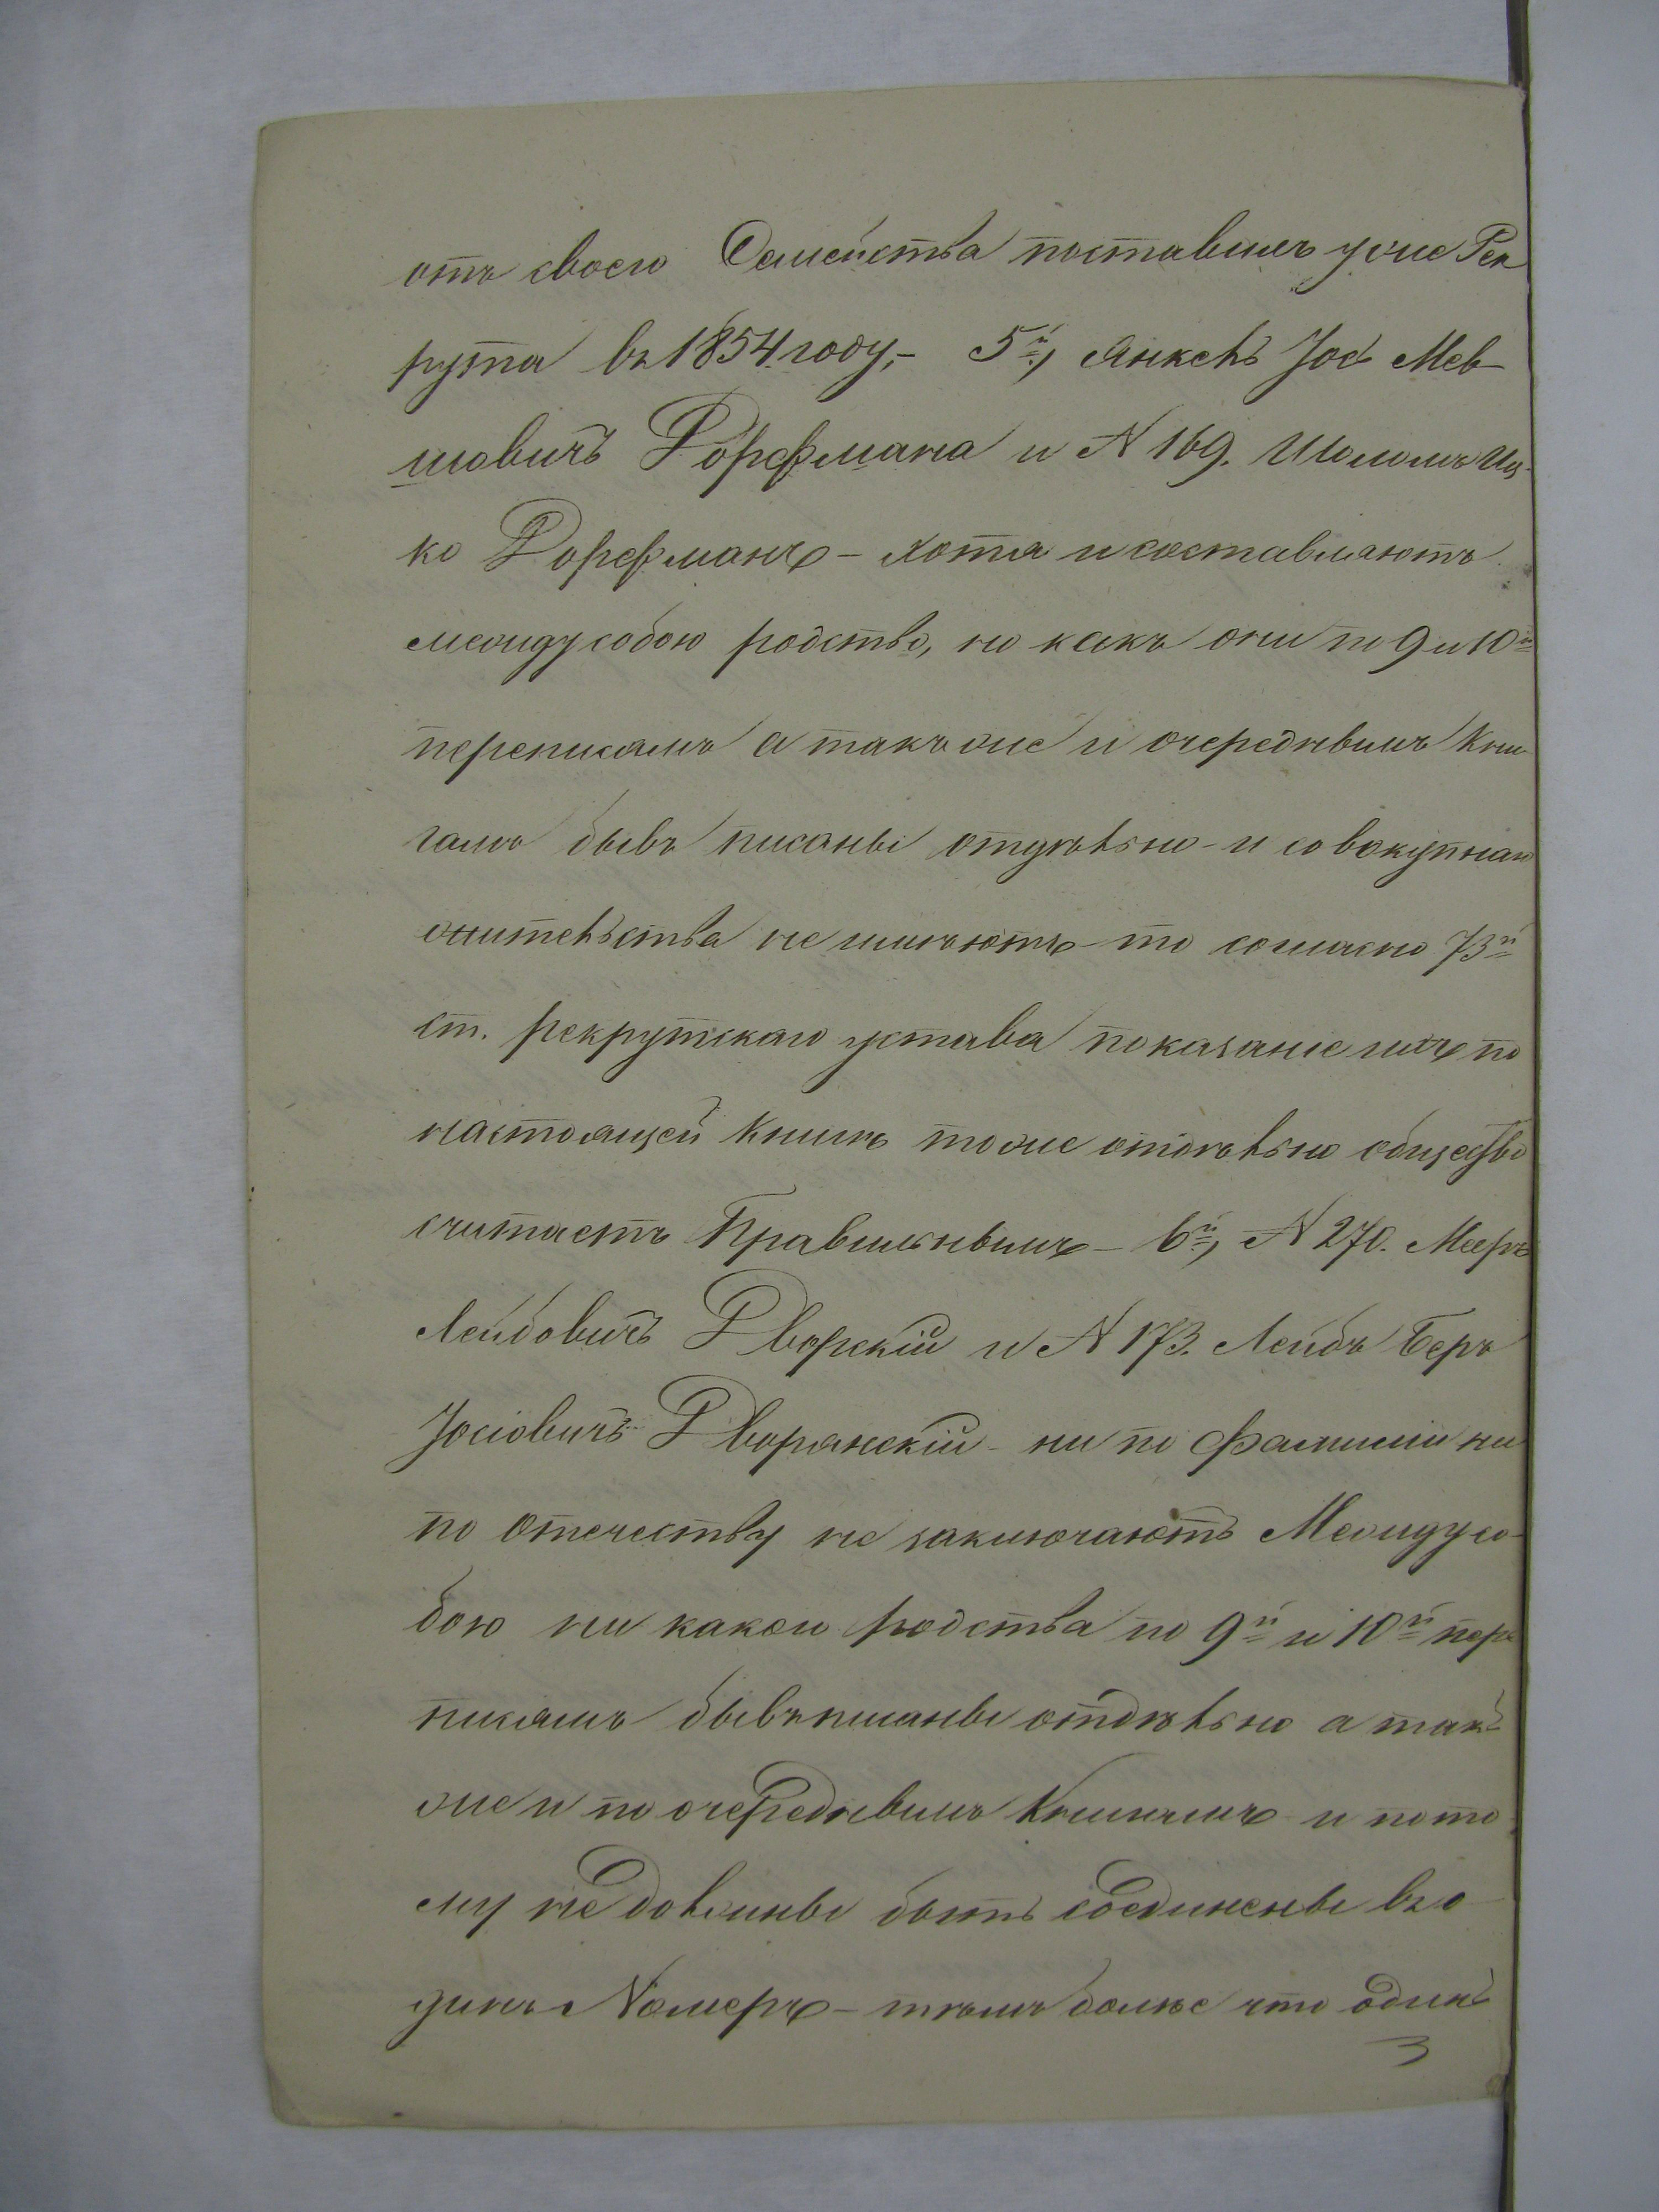 отъ своего Семейства поставилъ уже Рек
рута въ 1854. году,- 5й, Янкель Іос Мев-
шовичъ Дорфмана и N 169. Шоломъ Иц-
ко Дорфманъ - хотя и составляютъ
между собою родство, но какъ они по 9 и 10й
переписямъ а такъ же и очереднымъ Кни
гамъ бывъ писаны отдѣльно - и совокупнаго
жительства не имѣютъ - то согласно 73й
ст. рекрутскаго устава показаніе ихъ по
настоящей Книгѣ тоже отдѣльно общество
считаетъ Правильнымъ - 6й, N 270. Мееръ
Лейбовичъ Дворскій и N 173. Лейбъ Беръ
Іосіовичъ Дворянскій - ни по фамиліи ни
по отечеству не заключаютъ Между со-
бою ни какого родства по 9й и 10й пере
писямъ бывъ писаны отдѣльно а такъ
же и по очереднымъ Книгамъ - и пото
му не должны быть соединены въ о
динъ Номеръ - тѣмъ болѣе что одинъ
3